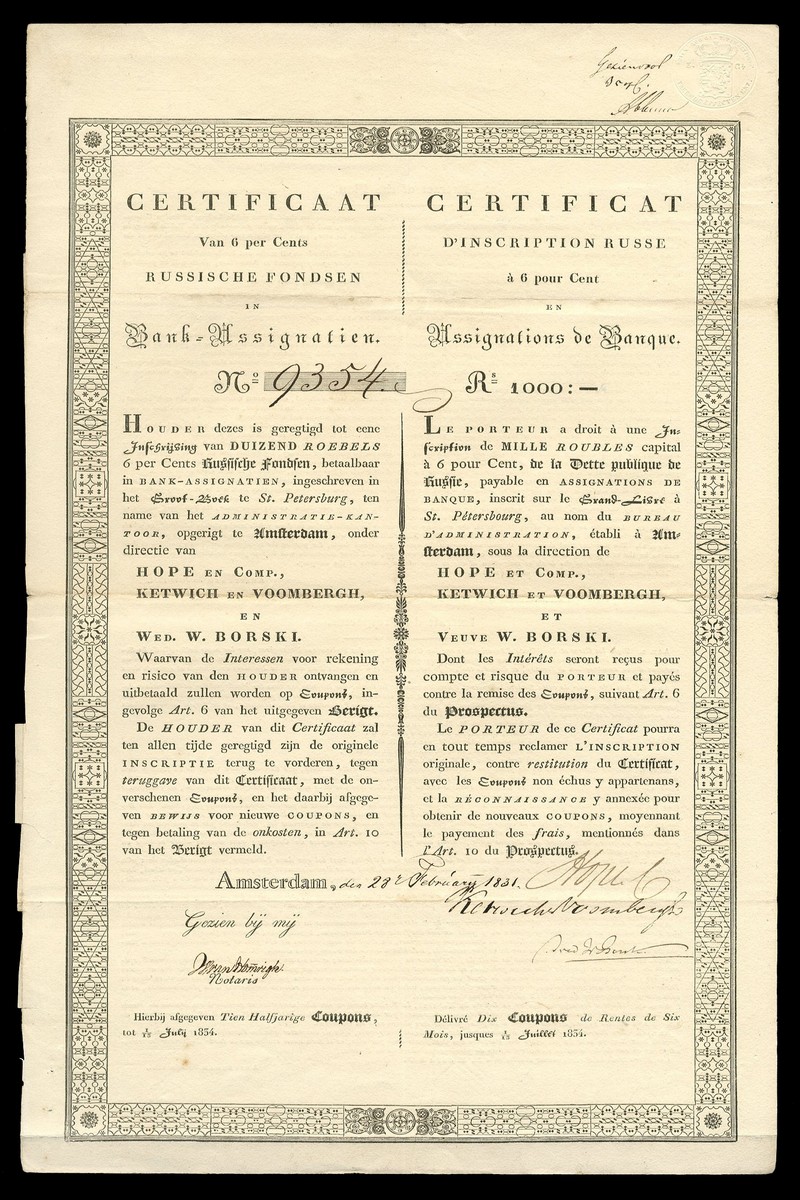 CERTIFICAAT
Van 6 per Cents
RUSSISCHE FONDSEN
IN
Bank-Assignatien.
No 9354.
HOUDER dezes is geregtigd tot eene
Inschrijving van DUIZEND ROEBELS
6 per Cents Russische Fondsen, betaalbaar
in BANK-ASSIGNATIEN, ingeschreven in
het Groot-Boek te St. Petersburg, ten
name van het ADMINISTRATIE-KAN-
TOOR, opgerigt te Amsterdam, onder
directie van
HOPE EN COMP.,
KETWICH EN VOOMBERGH,
EN
WED. W. BORSKI.
Waarvan de Interessen voor rekening
en risico van den HOUDER ontvangen en
uitbetaald zullen worden op Coupons, in-
gevolge Art. 6 van het uitgegeven Berigt.
De HOUDER van dit Certificaat zal
ten allen tijde geregtigd zijn de originele
INSCRIPTIE terug te vorderen, tegen
teruggave van dit Certificaat, met de on-
verschenen Coupons, en het daarbij afgege-
ven BEWIJS voor nieuwe COUPONS, en
tegen betaling van de onkosten, in Art. 10
van het Berigt vermeld.
CERTIFICAT
D'INSCRIPTION RUSSE
à 6 pour Cent
EN
Assignations de Banque.
Rs 1000:—
LE PORTEUR a droit à une In-
scription de MILLE ROUBLES capital
à 6 pour Cent, de la Dette publique de
Russie, payable en ASSIGNATIONS DE
BANQUE, inscrit sur le Grand-Livre à
St. Pétersbourg, au nom du BUREAU
D'ADMINISTRATION, établi à Am-
sterdam, sous la direction de
HOPE ET COMP.,
KETWICH ET VOOMBERGH,
ET
VEUVE W. BORSKI.
Dont les Intérêts seront reçus pour
compte et risque du PORTEUR et payés
contre la remise des Coupons, suivant Art. 6
du Prospectus.
Le PORTEUR de ce Certificat pourra
en tout temps reclamer L'INSCRIPTION
originale, contre restitution du Certificat,
avec les Coupons non échus y appartenans,
et la RÉCONNAISSANCE y annexée pour
obtenir de nouveaux COUPONS, moyennant
le payement des frais, mentionnés dans
l'Art. 10 du Prospectus.
Amsterdam, den 28e February 1831.
Ketwich & Voombergh
Wed W Borski
Gezien bij mij
Notaris
Hierbij afgegeven Tien Halfjarige Coupons,
tot 1/13 Julij 1834.
Délivré Dix Coupons de Rentes de Six
Mois, jusques 1/13 Juillet 1834.